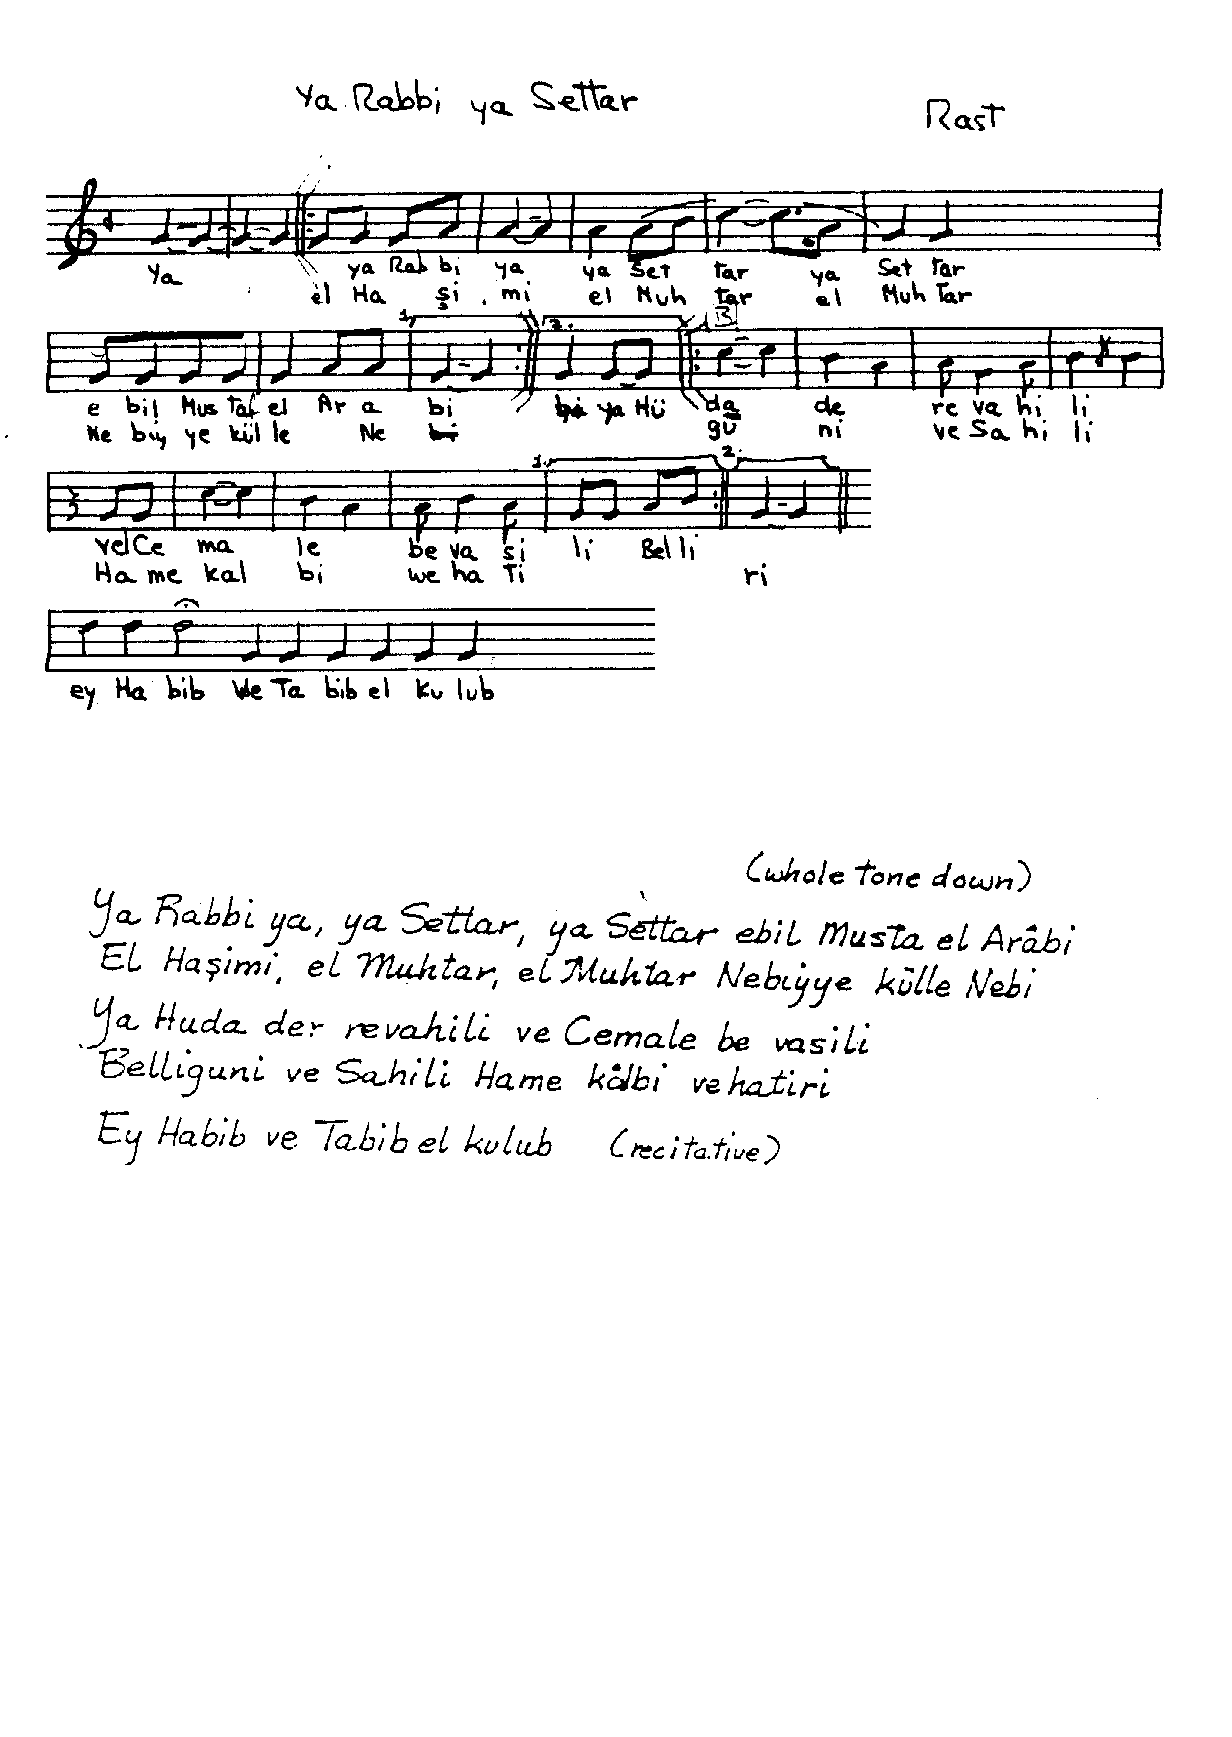 Ya Rabbi ya Settar
Rast
Ya ya Rab bi ya ya Set tar ya Set tar
el Ha şi mi el Muh tar el Muh tar
1. 2. B
e bil Mus taf el Ar a bi ya Hü da de re va hi li
Ne biy ye kül le Ne bi gü ni ve Sa hi li
1. 2.
vel Ce ma le be va si li Bel li
Ha me kal bi we ha Ti ri
ey Ha bib We Ta bib el ku lub
(whole tone down)
Ya Rabbi ya, ya Settar, ya Settar ebil Musta el Arâbi
El Haşimi, el Muhtar, el Muhtar Nebiyye külle Nebi
Ya Huda der revahili ve Cemale be vasili
Belliguni ve Sahili Hame kâlbi vehatiri
Ey Habib ve Tabib el kulub (recitative)